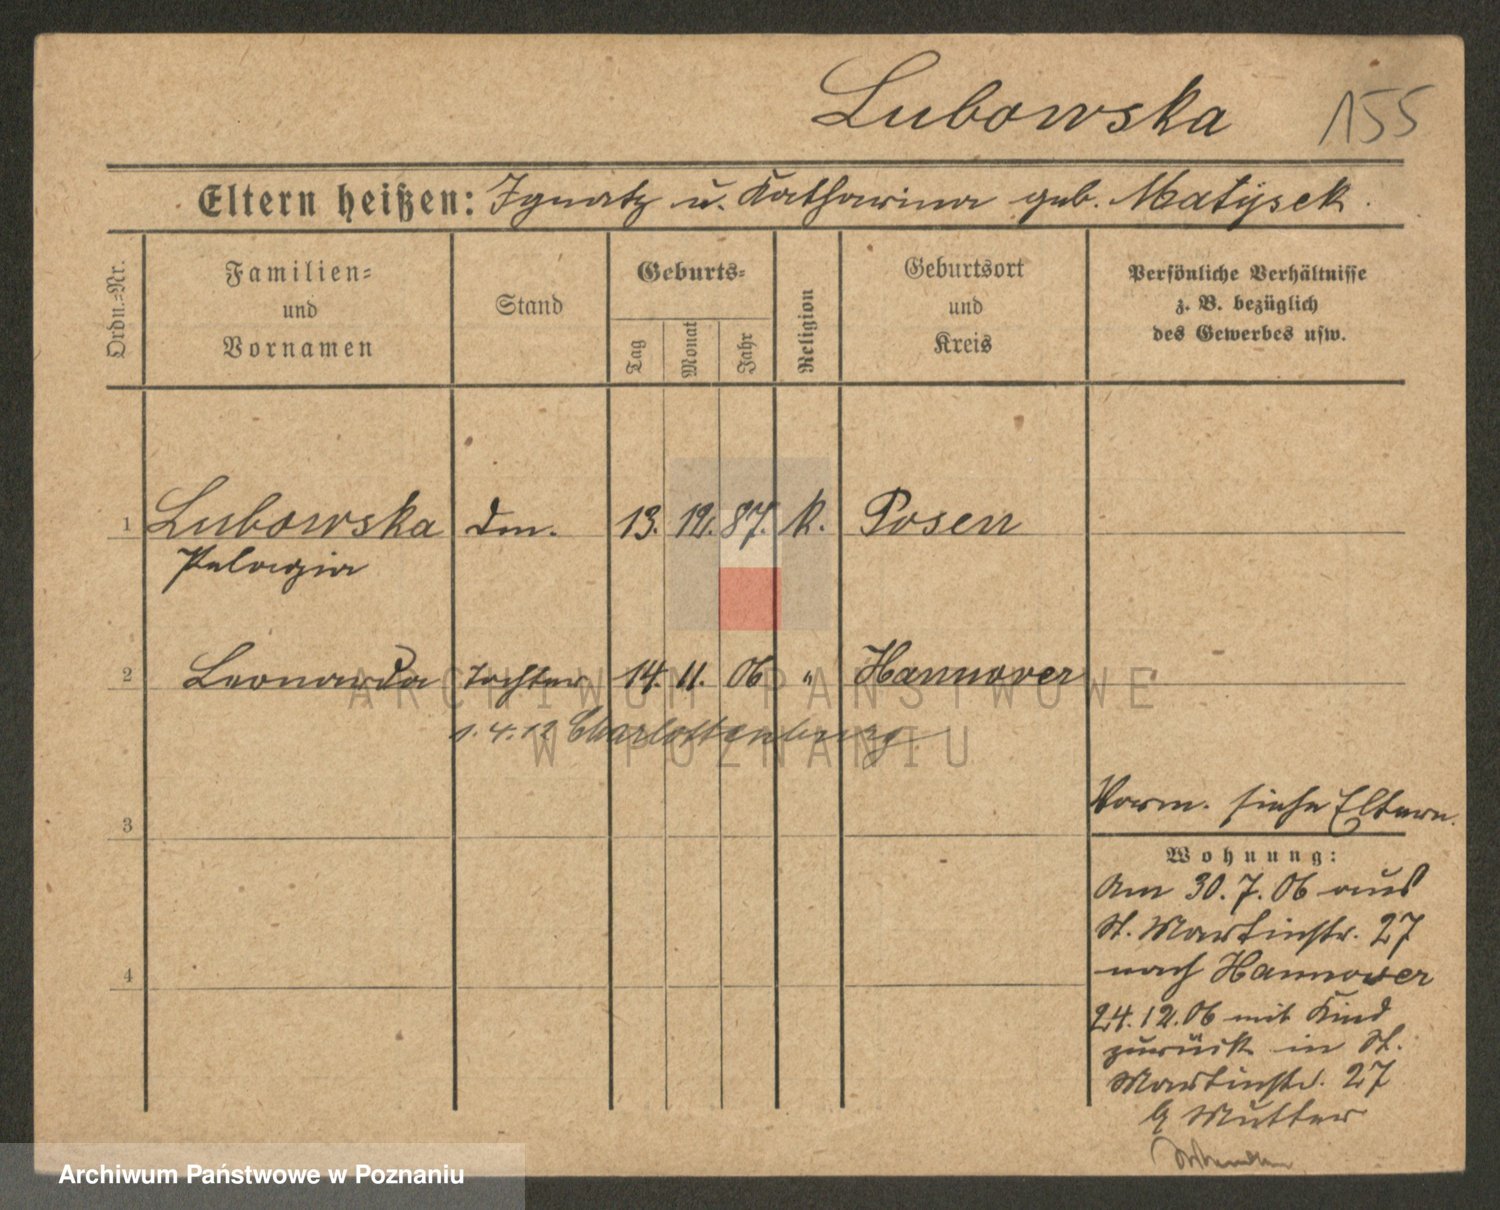 Lubowska 155
Eltern heißen: Ignatz u. Katharina geb. Matysek.
Ordn.-Nr.
Familien-
und
Vornamen
Stand
Geburts-
Tag
Monat
Jahr
Religion
Geburtsort
und
Kreis
Persönliche Verhältnisse
z. B. bezüglich
des Gewerbes usw.
1 Lubowska 13. 12. 87. K. Posen
Pelagia
2 Leonarda Tochter 14. 11. 06 " Hannover
1.4.12 Charlottenburg
3
4
Vorm. siehe Eltern.
Wohnung:
Am 30.7.06 aus
St. Martinstr. 27
nach Hannover
24.12.06 mit Kind
zurück in St.
Martinstr. 27
b Mutter
ARCHIWUM PAŃSTWOWE
W POZNANIU
Archiwum Państwowe w Poznaniu